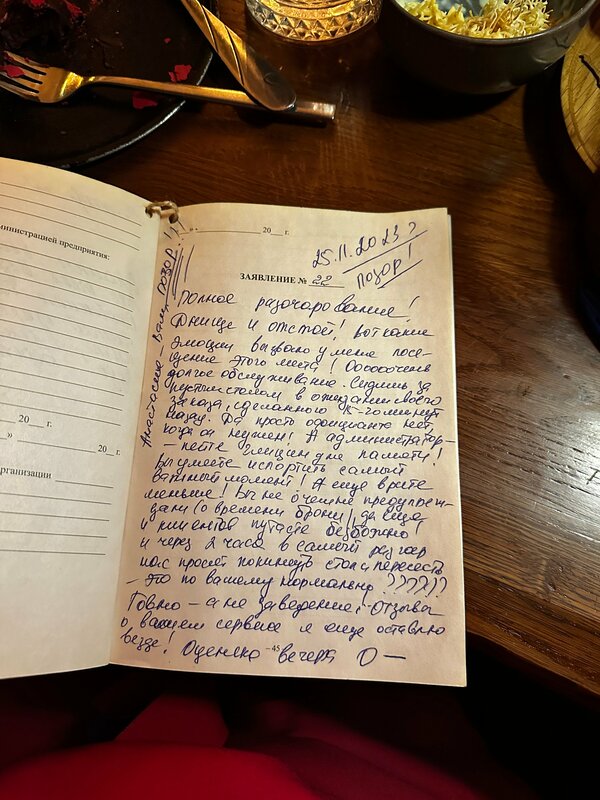 министрацией предприятия:
20 г.
» 20 г.
организации
» 20 г.
25.11.2023г
ЗАЯВЛЕНИЕ № 22
Позор!
Анастасия – Вам позор!!!
Полное разочарование!
Днище и отстой! Вот какие
эмоции вызвало у меня посе-
щение этого места! Ооооочень
долгое обслуживание. Сидишь за
пустым столом в ожидании своего
заказа, сделанного 15-20 минут
назад. Да просто официанта нет,
когда он нужен! А администратор –
– пейте глицин для памяти!
Вы умеете испортить самый
важный момент! А еще врите
меньше! Вы не о чем не предупреж-
дали (о времени брони), да еще
и клиентов путаете безбожно!
и через 2 часа в самый разгар
нас просят покинуть стол и пересесть
– это по вашему нормально??????
Говно – а не заведение! Отзывы
о вашем сервисе я еще оставлю
везде! Оценка вечера 0 –
-45-